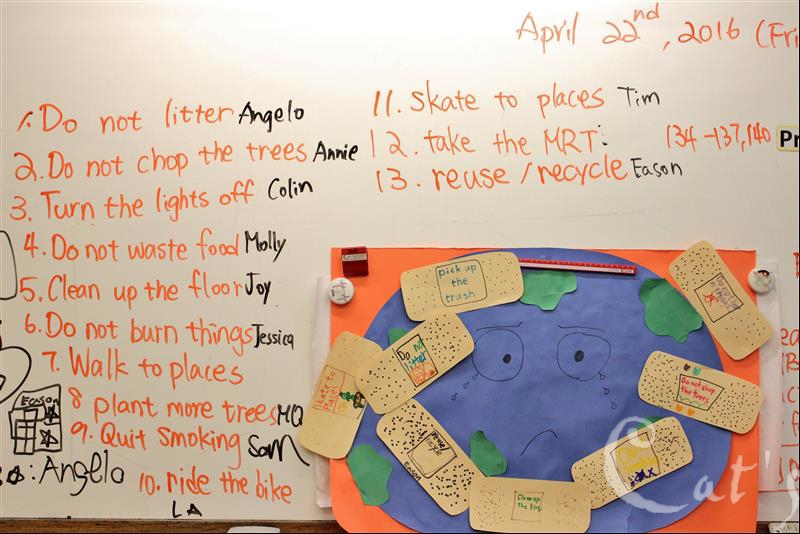 April 22nd, 2016 (Fri
1. Do not litter Angelo
2. Do not chop the trees Annie
3. Turn the lights off Colin
4. Do not waste food Molly
5. Clean up the floor Joy
6. Do not burn things Jessica
7. Walk to places
8 plant more trees MQ
9. Quit smoking Sam
10. ride the bike
LA
Eason
Angelo
11. skate to places Tim
12. take the MRT:
13. reuse / recycle Eason
134-137, 140
Pr
pick up
the
trash
Do not
litter
Do not chop
the trees
eason
Clean up
Cat's